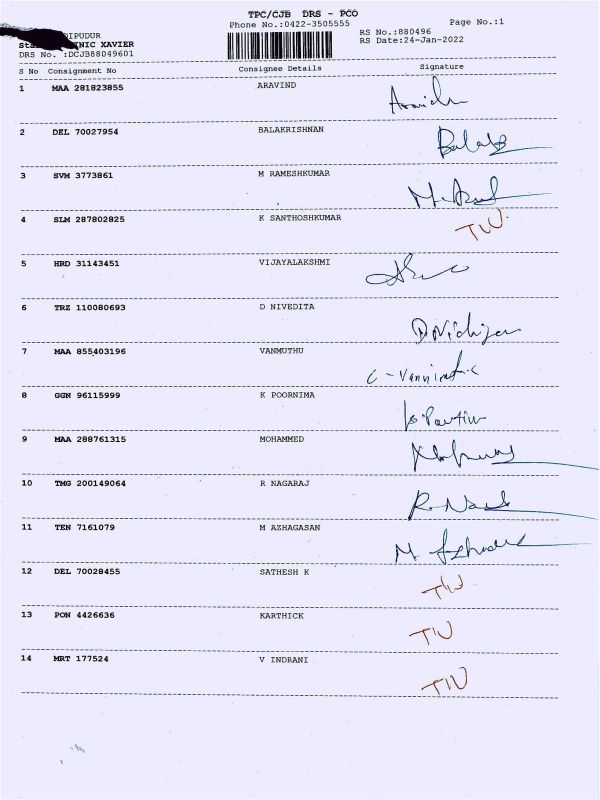 TPC/CJB DRS - PCO
Phone No.:0422-3505555
Page No.:1
DIPUDUR
INIC XAVIER
DRS No. :DCJB88049601
RS No.:880496
RS Date:24-Jan-2022
S No Consignment No Consignee Details Signature
1 MAA 281823855 ARAVIND Aravind
2 DEL 70027954 BALAKRISHNAN
3 SVM 3773861 M RAMESHKUMAR
4 SLM 287802825 K SANTHOSHKUMAR
5 HRD 31143451 VIJAYALAKSHMI
6 TRZ 110080693 D NIVEDITA
7 MAA 855403196 VANMUTHU
8 GGN 96115999 K POORNIMA
9 MAA 288761315 MOHAMMED
10 TMG 200149064 R NAGARAJ
11 TEN 7161079 M AZHAGASAN
12 DEL 70028455 SATHESH K
13 PON 4426636 KARTHICK
14 MRT 177524 V INDRANI